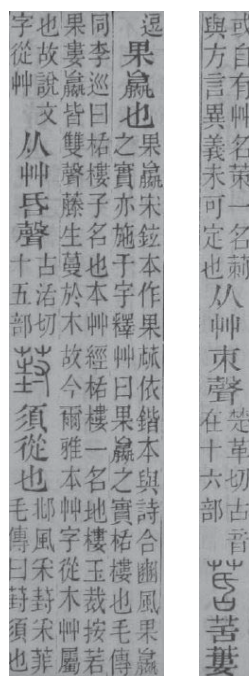 或自有艸名茦一名莿與方言異義未可定也从艸朿聲楚革切古音在十六部𦯄苦蔞
逗果蠃也果蠃宋鉉本作果蓏依鍇本與詩合豳風果蠃之實亦施于宇釋艸曰果蠃之實栝樓也毛傳
同李巡曰栝樓子名也本艸經栝樓一名地樓玉裁按若果蔞蠃皆雙聲藤生蔓於木故今爾雅本艸字從木艸屬
也故說文字從艸从艸昏聲古活切十五部葑須從也邶風釆葑釆菲毛傳曰葑須也